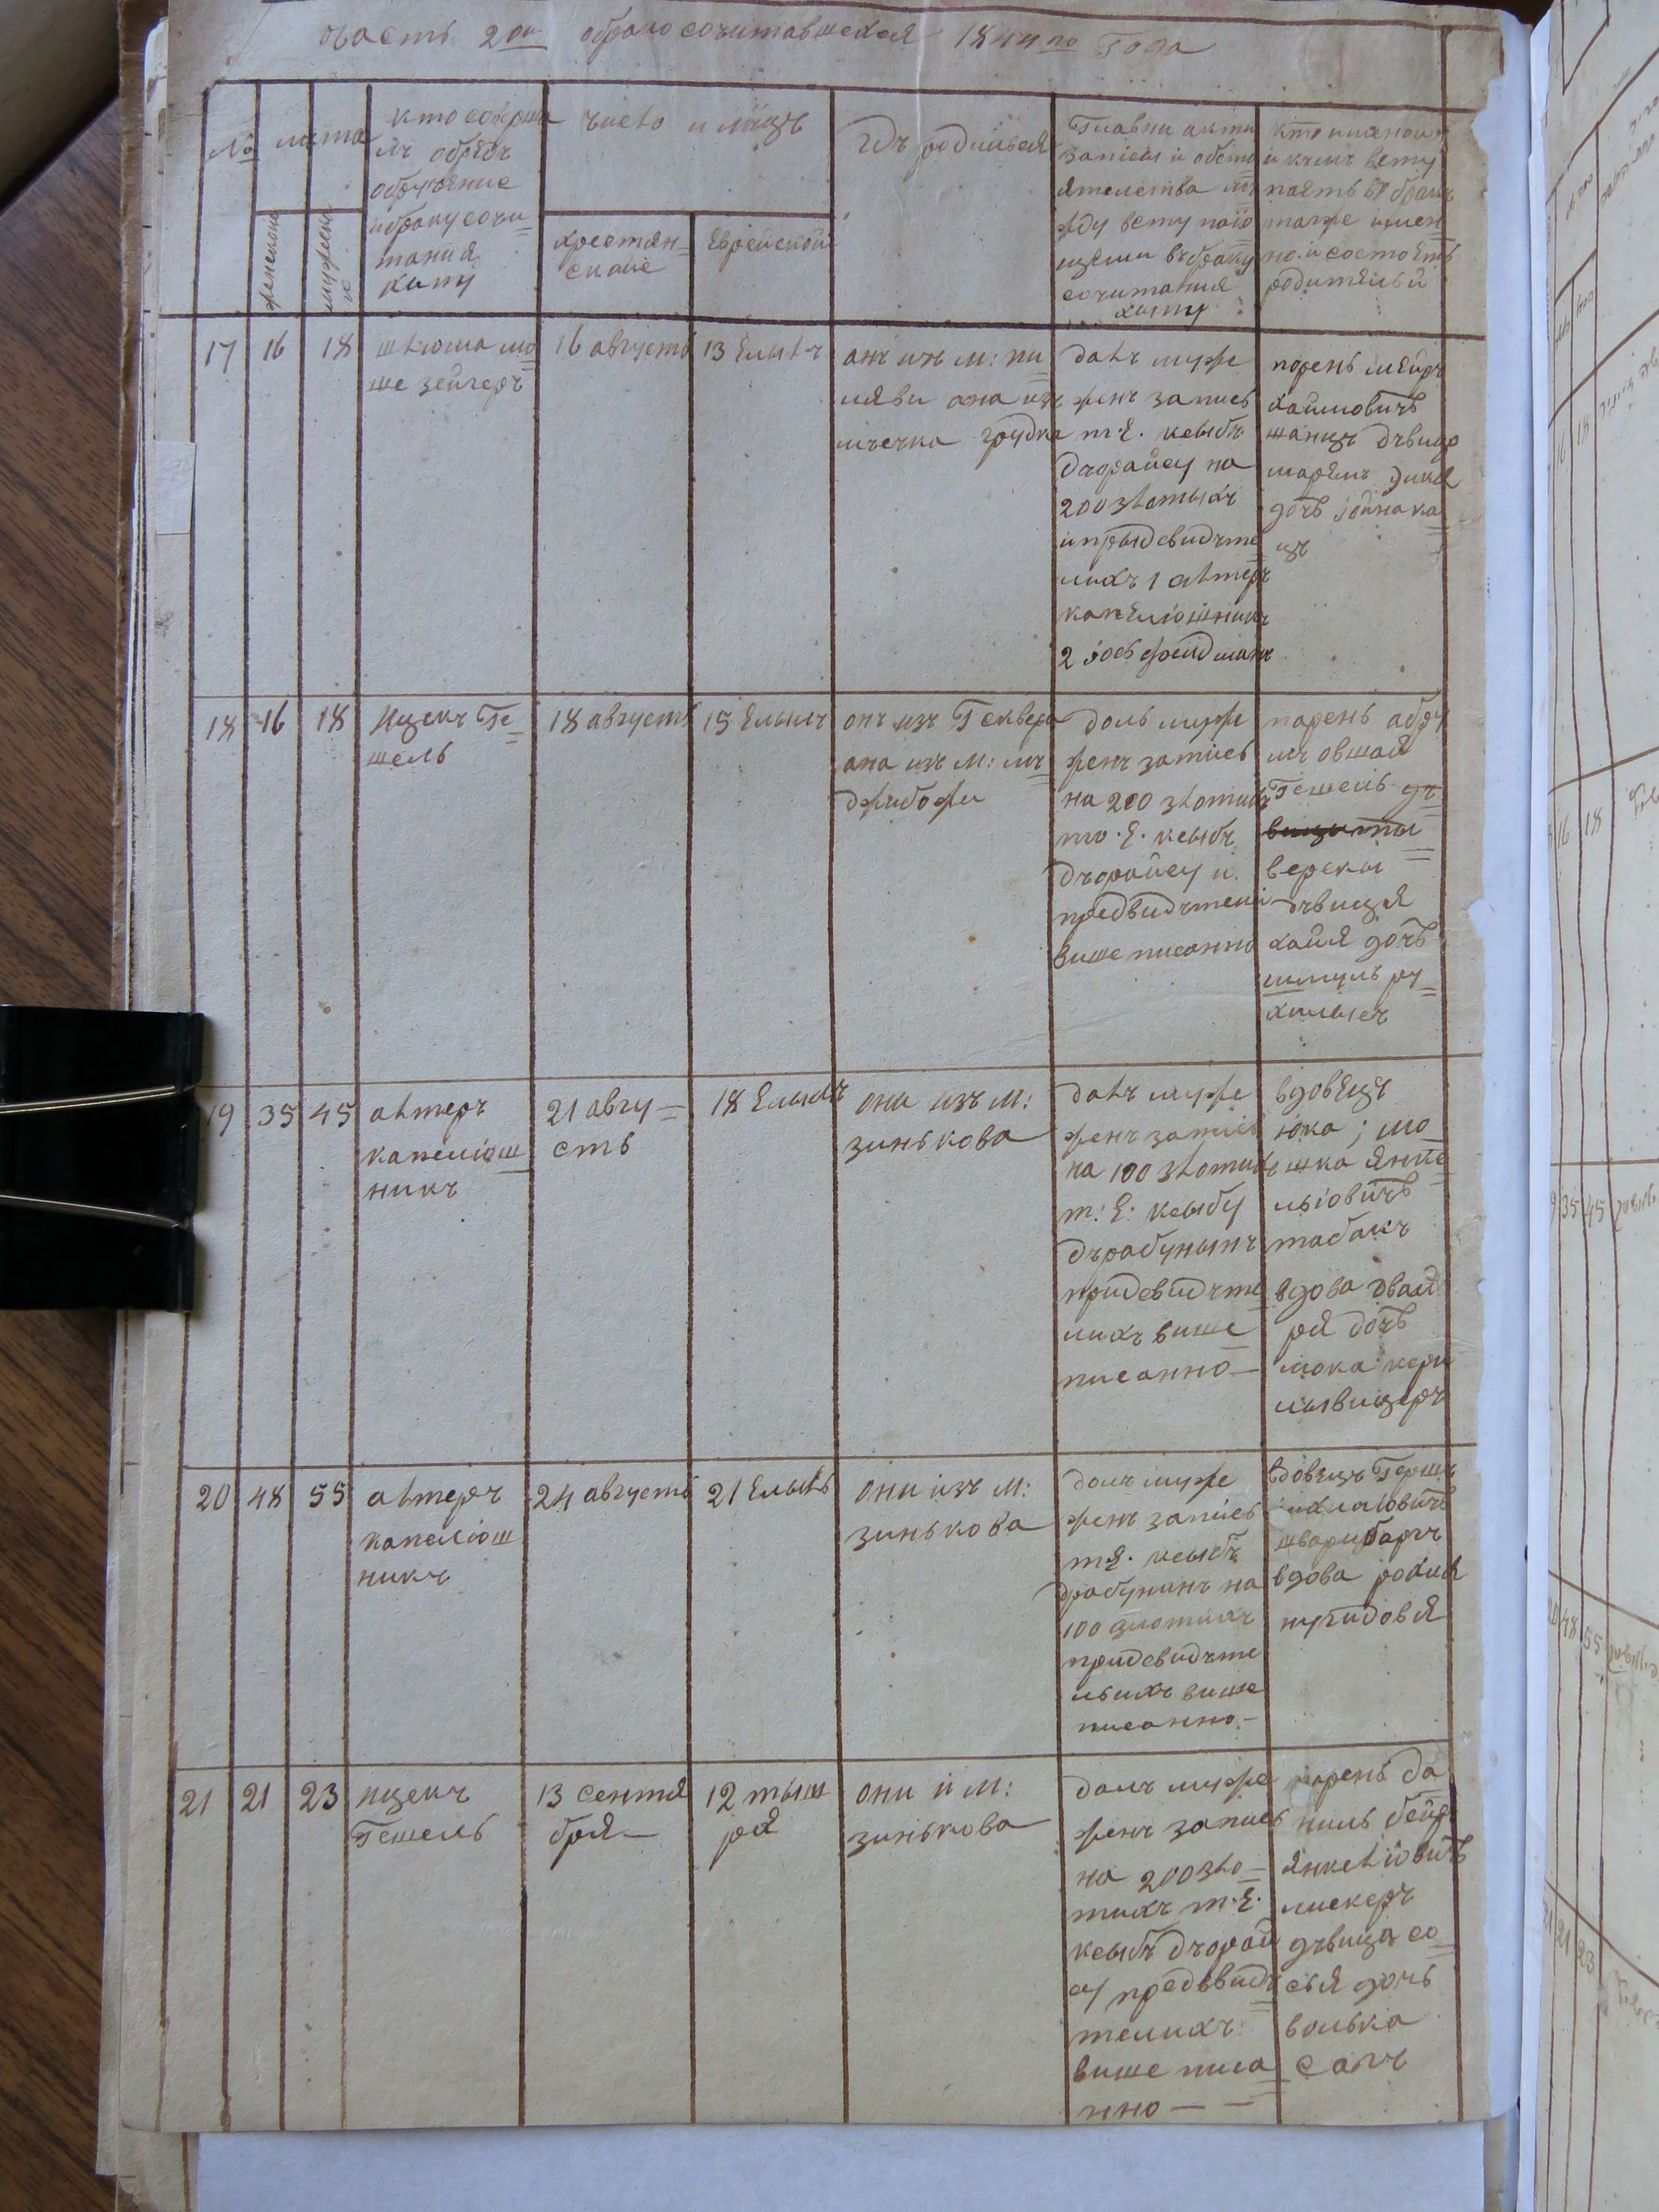 часть 2ои обракосочитавшехся 1844го года
№
лѣта
женскои
мужеско
кто соверша
лъ обрядъ
обручение
и бракусочи
тания
хипу
число и мѣцъ
хрестян
скаие
еврейской
гдѣ родился
Главни акти
записи и обсто
ятелства меж
жду вступаю
щими въбраку
сочитания
хипу
кто именои
и къмъ всту
паятъ въ бракъ
также имен
но и состоятъ
родителъи
17
16
18
шлиома мо
ше зейгеръ
16 августа
13 Елылъ
анъ изъ м: пи
ляви она изъ
мѣечка грудка
далъ муже
женъ записъ
т.е. ксыбъ
дъорайсу на
200 злотыхъ
и прыдсвидѣте
лихъ 1 алтеръ
капелюшникъ
2 јосъ фреидманъ
порень меиръ
хаимовичъ
шанцъ дѣвица
маремъ дика
дочъ јойна ка
цъ
18
16
18
ицекъ Ге
шель
18 августъ
15 Елылъ
онъ изъ Гсквера
ана изъ м: мѣ
джибожи
доль муже
женъ записъ
на 200 злотихъ
то.е. ксыбъ
дъорайсу и
предвидѣтели
више писанно
парень абру
мъ овшай
Гешель дѣ
верски
дѣвиця
хаия дочъ
шмуль ру
хилысъ
19
35
45
алтеръ
капелюш
никъ
21 авгу
стъ
18 Елылъ
они изъ м:
зинькова
далъ муже
женъ записъ
на 100 злотихъ
т: е: ксыбу
дърабунынъ
придсвидѣте
лихъ више
писанно
вдовецъ
юка; мо
шка янке
льовичъ
табакъ
вдова двай
ря дочъ
мока кери
лывицеръ
20
48
55
алтеръ
капелюш
никъ
24 августъ
21 Елылъ
они изъ м:
зинькова
далъ муже
женъ записъ
т.е. ксыбъ
драбунинъ на
100 злотихъ
придсвидѣте
льихъ више
писанно
вдовецъ Гершъ
михильовичъ
шварцбаргъ
вдова рохия
нухидовя
21
21
23
ицекъ
Гешель
13 сентя
бря
12 тыш
ря
они й м:
зинькова
далъ муже
женъ записъ
на 200 зло
тихъ т.е.
ксыбъ дъорай
су предввидѣ
телихъ
више писа
нно
парень да
ниль беир
янкельовичъ
лискеръ
дѣвиця со
сья дочъ
волько
сагъ